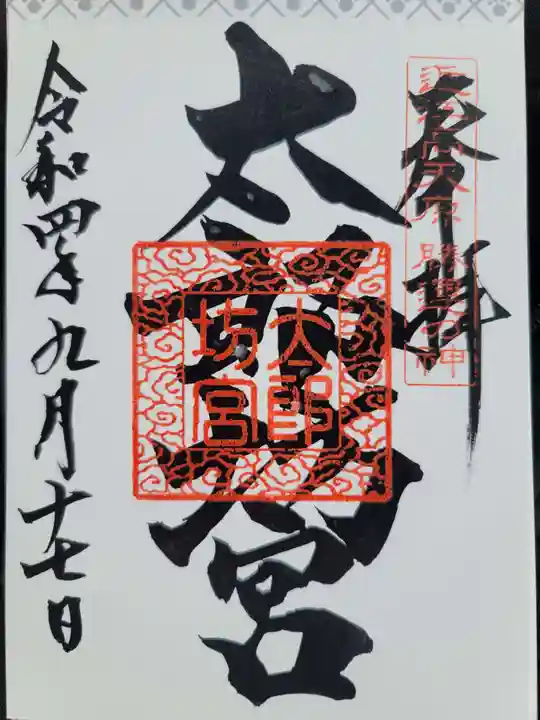 奉拝
近江高天原 勝運の神
太郎坊宮
太郎坊宮
令和四年九月十七日